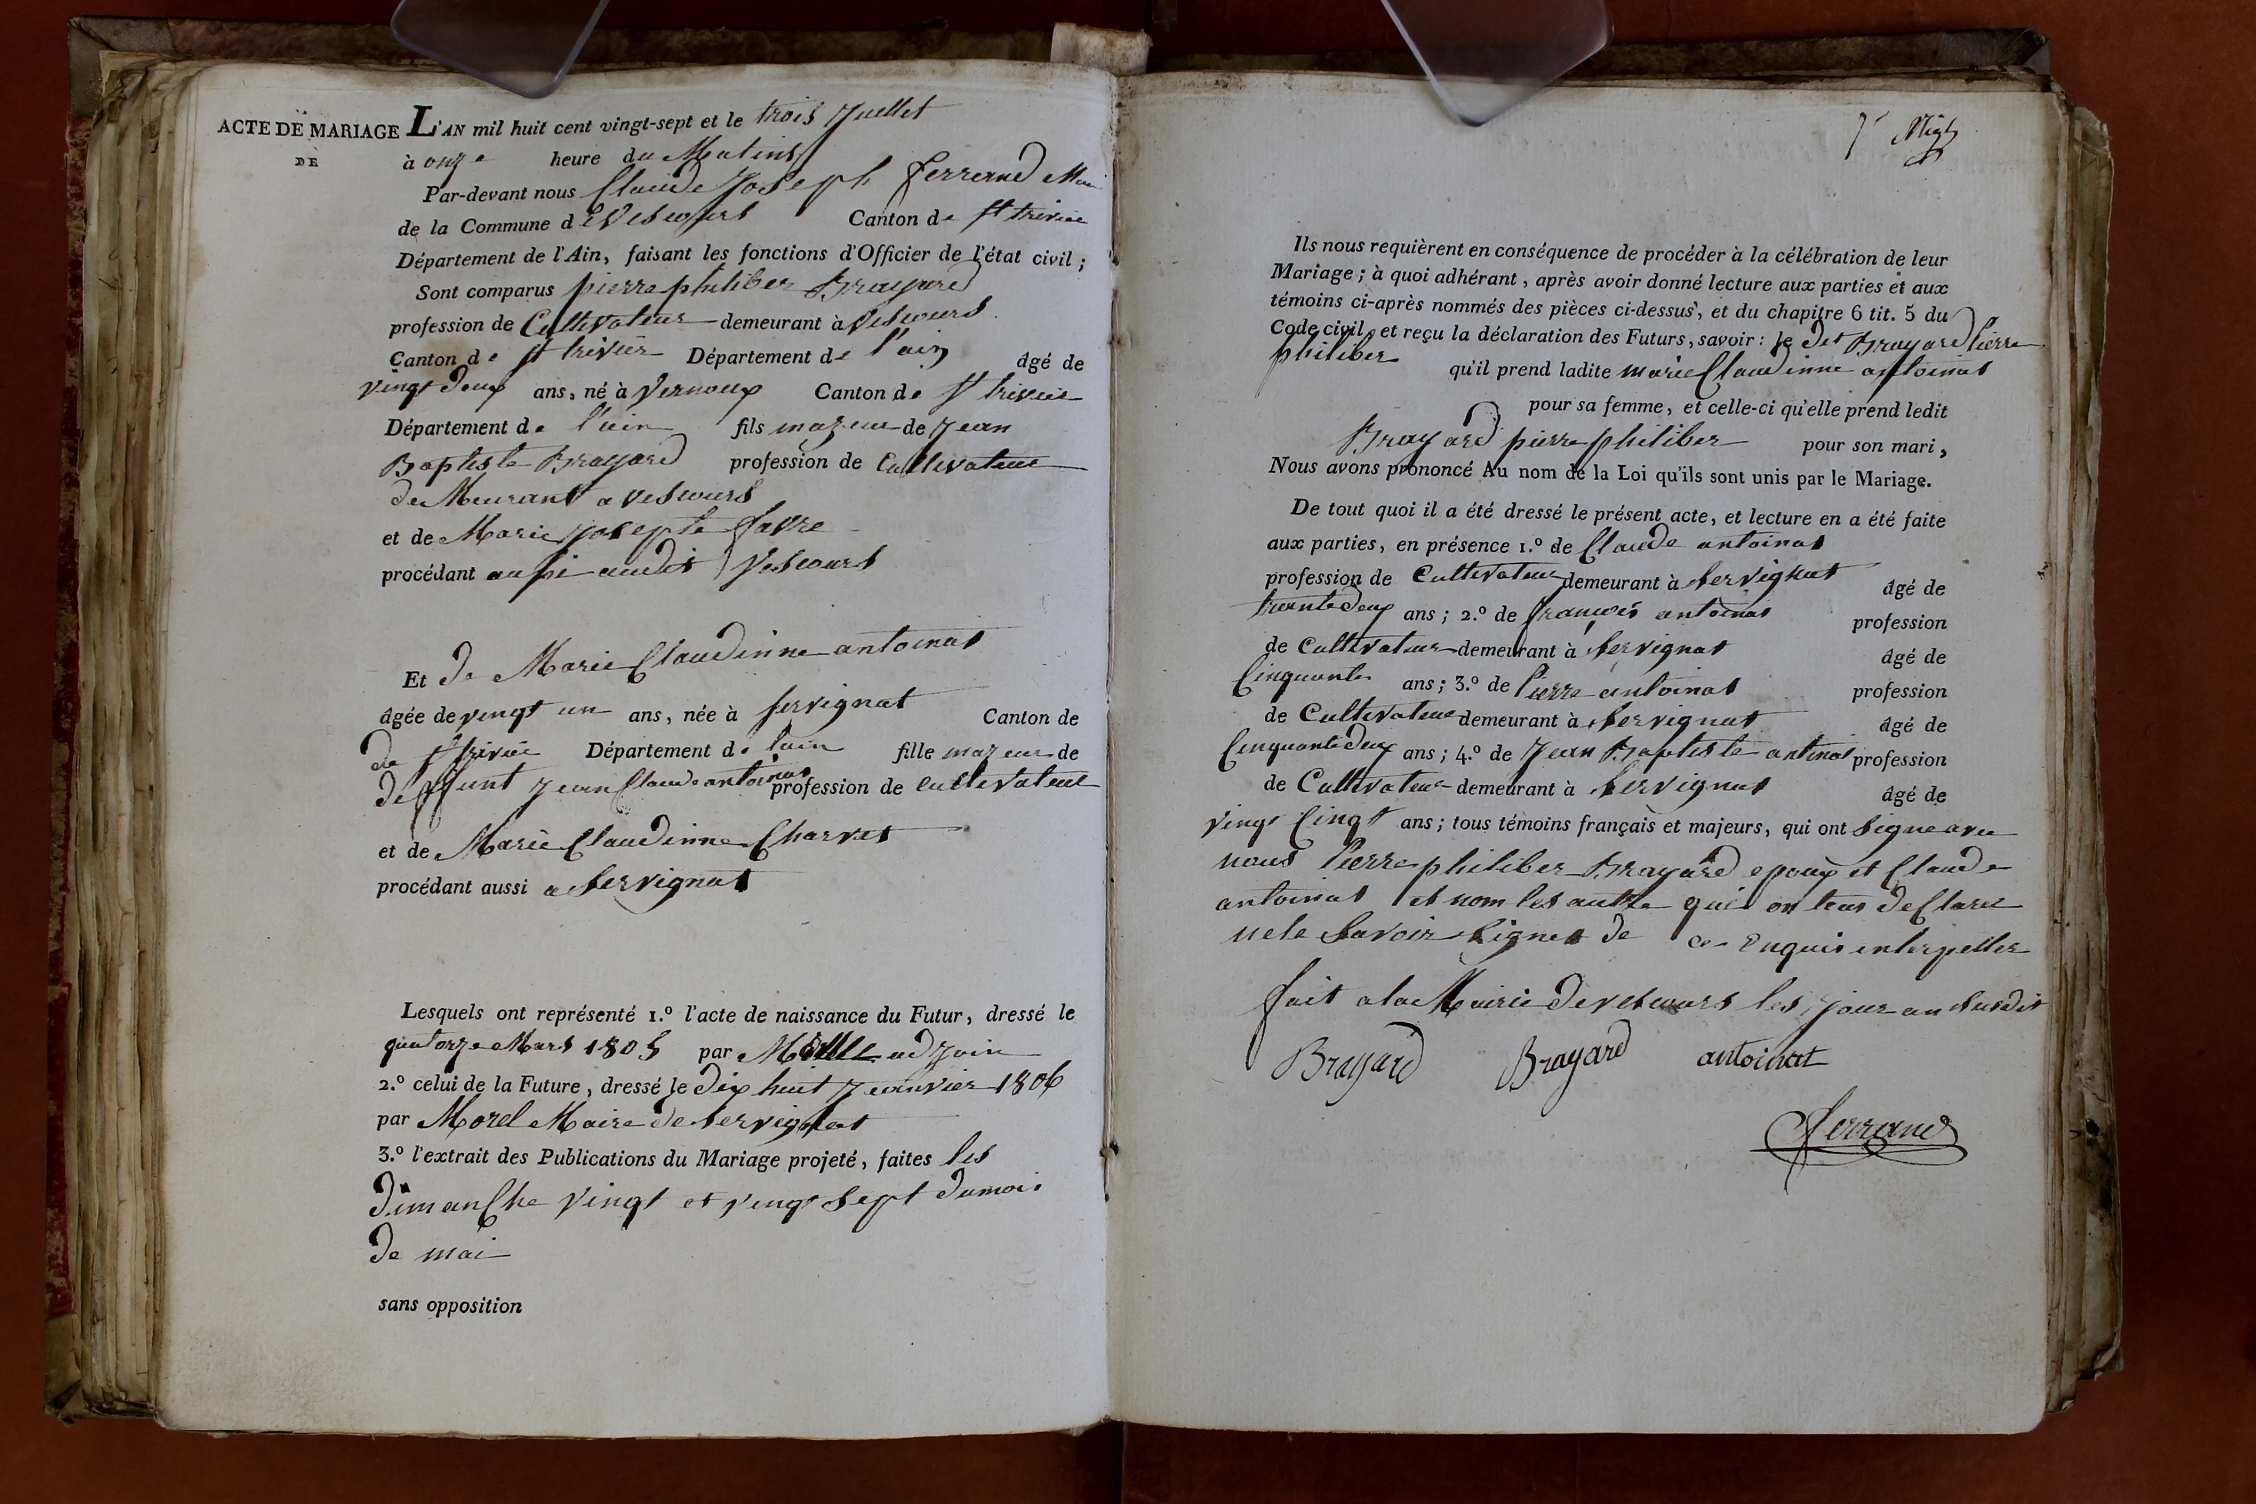 ACTE DE MARIAGE L'AN mil huit cent vingt-sept et le trois Juellet
DE à onze heure du Matins
Par-devant nous Claude Joseph Ferrand
de la Commune de Vescours Canton de St trivier
Département de l'Ain, faisant les fonctions d'Officier de l'état civil ;
Sont comparus pierre philiber Brayard
profession de Cultivateur demeurant à Vescours
Canton de St trivier Département de l'ain âgé de
vingt deux ans, né à Vernoux Canton de St trivier
Département de l'ain fils mazeur de Jean
Baptiste Brayard profession de Cultivateur
de Meurant a vescours
et de Marie Josepte favre
procédant aussi audit Vescours
Et de Marie Claudinne antoinat
âgée de vingt un ans, née à servignat Canton de
de St trivier Département de lain fille mazeur de
deffunt Jean Claude antoinat profession de Cultivateur
et de Marie Claudinne Charvet
procédant aussi a Servignat
Lesquels ont représenté 1.º l'acte de naissance du Futur, dressé le
quatorze Mars 1805 par adjoin
2.º celui de la Future, dressé le dix huit Jeanvier 1806
par Morel Maire de Servignat
3.º l'extrait des Publications du Mariage projeté, faites les
dimanche vingt et vingt sept du mois
de mai
sans opposition
Ils nous requièrent en conséquence de procéder à la célébration de leur
Mariage ; à quoi adhérant, après avoir donné lecture aux parties et aux
témoins ci-après nommés des pièces ci-dessus, et du chapitre 6 tit. 5 du
Code civil, et reçu la déclaration des Futurs, savoir : le dit Brayard Pierre
philiber qu'il prend ladite marie Claudinne antoinat
pour sa femme, et celle-ci qu'elle prend ledit
Brayard pierre philiber pour son mari,
Nous avons prononcé Au nom de la Loi qu'ils sont unis par le Mariage.
De tout quoi il a été dressé le présent acte, et lecture en a été faite
aux parties, en présence 1.º de Claude antoinat
profession de Cultivateur demeurant à Servignat âgé de
trante deux ans ; 2.º de françois antoinat profession
de Cultivateur demeurant à Servignat âgé de
Cinquante ans ; 3.º de Pierre antoinat profession
de Cultivateur demeurant à Servignat âgé de
Cinquante deux ans ; 4.º de Jean Baptiste antinat profession
de Cultivateur demeurant à Servignat âgé de
vingt Cinqt ans ; tous témoins français et majeurs, qui ont Signe avec
nous Pierre philiber Brayard epoux et Claude
antoinat et nom les autre qui on teus de Claret
ne le Savoir Signer de ce enquis interpeller
fait a la Mairie de vescours les jour an susdit
Brayard Brayard antoinat
Ferrand